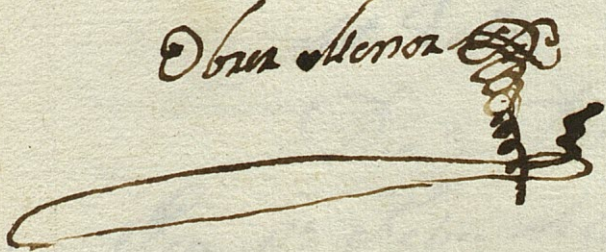 Obrer Menor